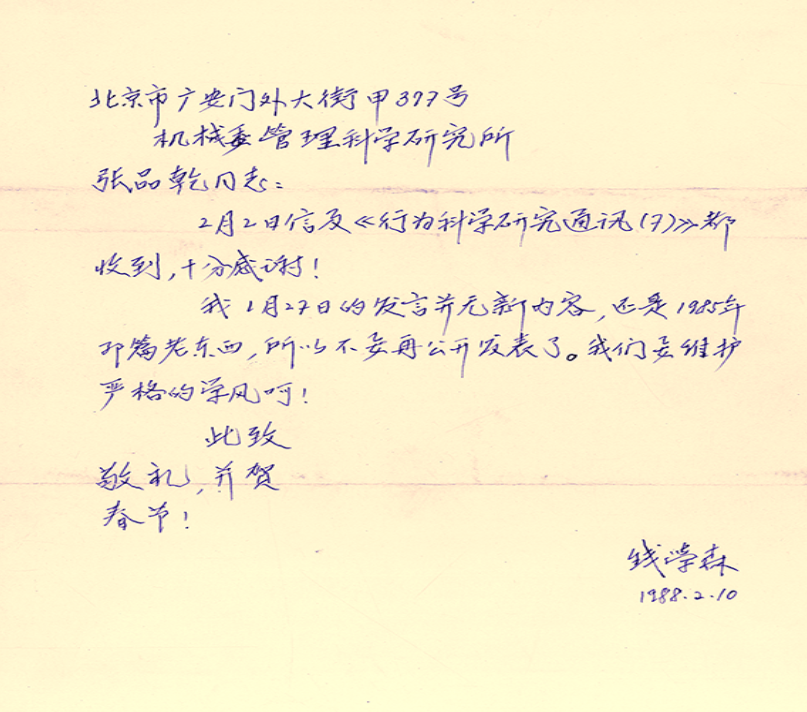 北京市广安门外大街甲397号
机械委管理科学研究所
张品乾同志：
2月2日信及《行为科学研究通讯(7)》都
收到，十分感谢！
我1月27日的发言并无新内容，还是1985年
那篇老东西，所以不要再公开发表了。我们要维护
严格的学风呵！
此致
敬礼，并贺
春节！
钱学森
1988.2.10